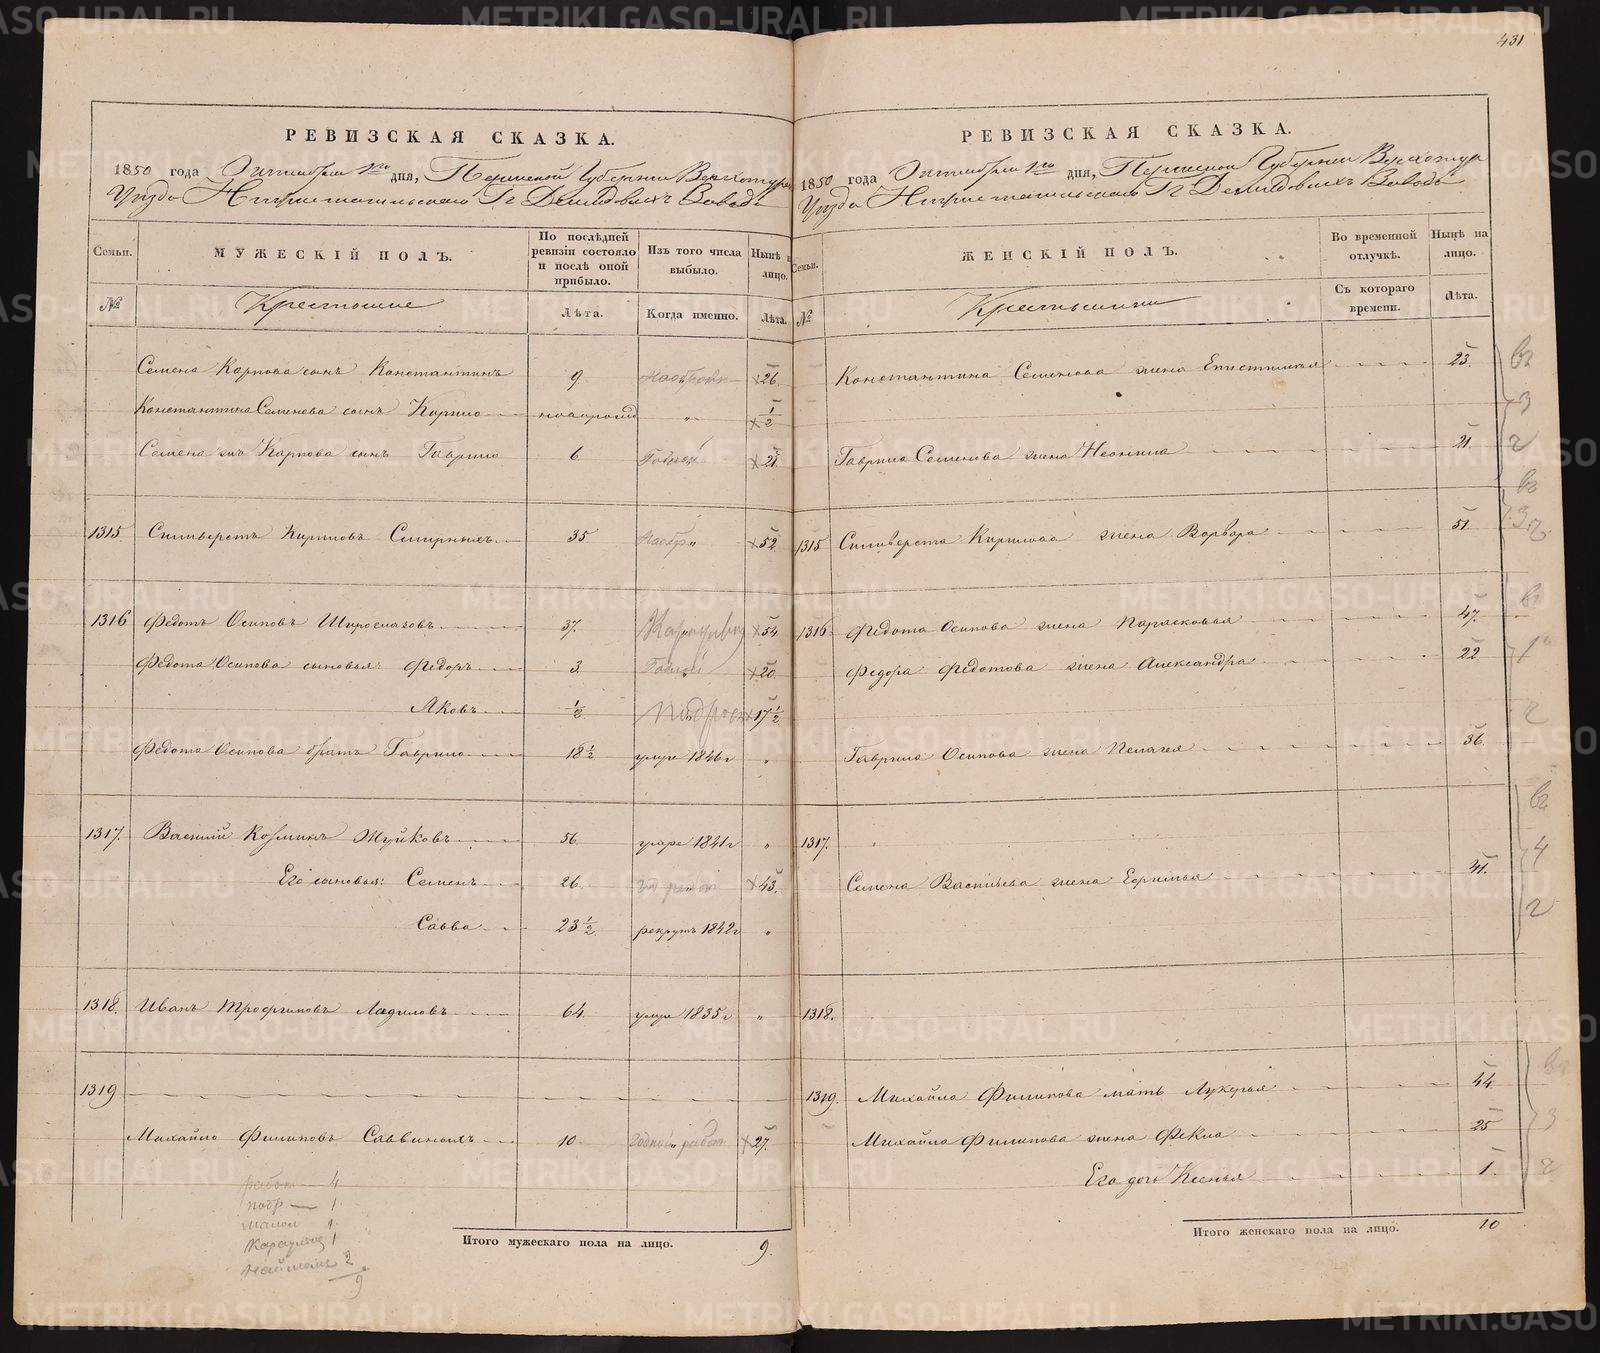 431
РЕВИЗСКАЯ СКАЗКА.
1850 года Октября 1го дня, Пермской Губерніи Верхотур
Уезда Нижнетагильскаго Гг Демидовыхъ Завода
Семьи. МУЖЕСКІЙ ПОЛЪ. По послѣдней ревизіи состояло и послѣ оной прибыло. Изъ того числа выбыло. Нынѣ на лицо.
№ Крестьяне Лѣта. Когда именно. Лѣта.
Семена Карпова сынъ Константинъ 9 26
Константина Семенова сынъ Кирило новорожд „ 1/2
Семена же Карпова сынъ Гаврило 6 21
1315 Силиверстъ Кириловъ Смирныхъ 35 52
1316 Федотъ Осиповъ Широглазовъ 37. 54
Федота Осипова сыновья: Федоръ 3. 20
Яковъ 1/2 17 1/2
Федота Осипова братъ Гаврило 18 1/2 умре 1846 г „
1317. Василий Козминъ Жуйковъ 56. умре 1841 г „
Его сыновья: Семенъ 26 43.
Савва 23 1/2 рекрутъ 1842 г „
1318. Иванъ Трофимовъ Ладиловъ 64. умре 1835 г „
1319
Михайло Филиповъ Саввиныхъ 10 27.
работ — 4
подр — 1
малол 1
Караульщ 1
2
9
Итого мужескаго пола на лицо. 9.
РЕВИЗСКАЯ СКАЗКА.
1850 года Октября 1го дня, Пермской Губерніи Верхотур
Уезда Нижнетагильскаго Гг Демидовыхъ Завода
Семьи. ЖЕНСКІЙ ПОЛЪ. Во временной отлучкѣ. Нынѣ на лицо.
№ Крестьянки Съ котораго времени. Лѣта.
Константина Семенова жена Епистимья 23.
Гаврила Семенова жена Неонила 21.
1315 Силиверста Кирилова жена Варвара 51
1316 Федота Осипова жена Парасковья 47.
Федора Федотова жена Александра 22
Гаврила Осипова жена Пелагея 36.
1317.
Семена Васильева жена Ефимья 41.
1318.
1319. Михайла Филипова мать Лукерья 44
Михайла Филипова жена Фекла 25
Его дочь Ксенья 1.
Итого женскаго пола на лицо. 10
METRIKI.GASO-URAL.RU